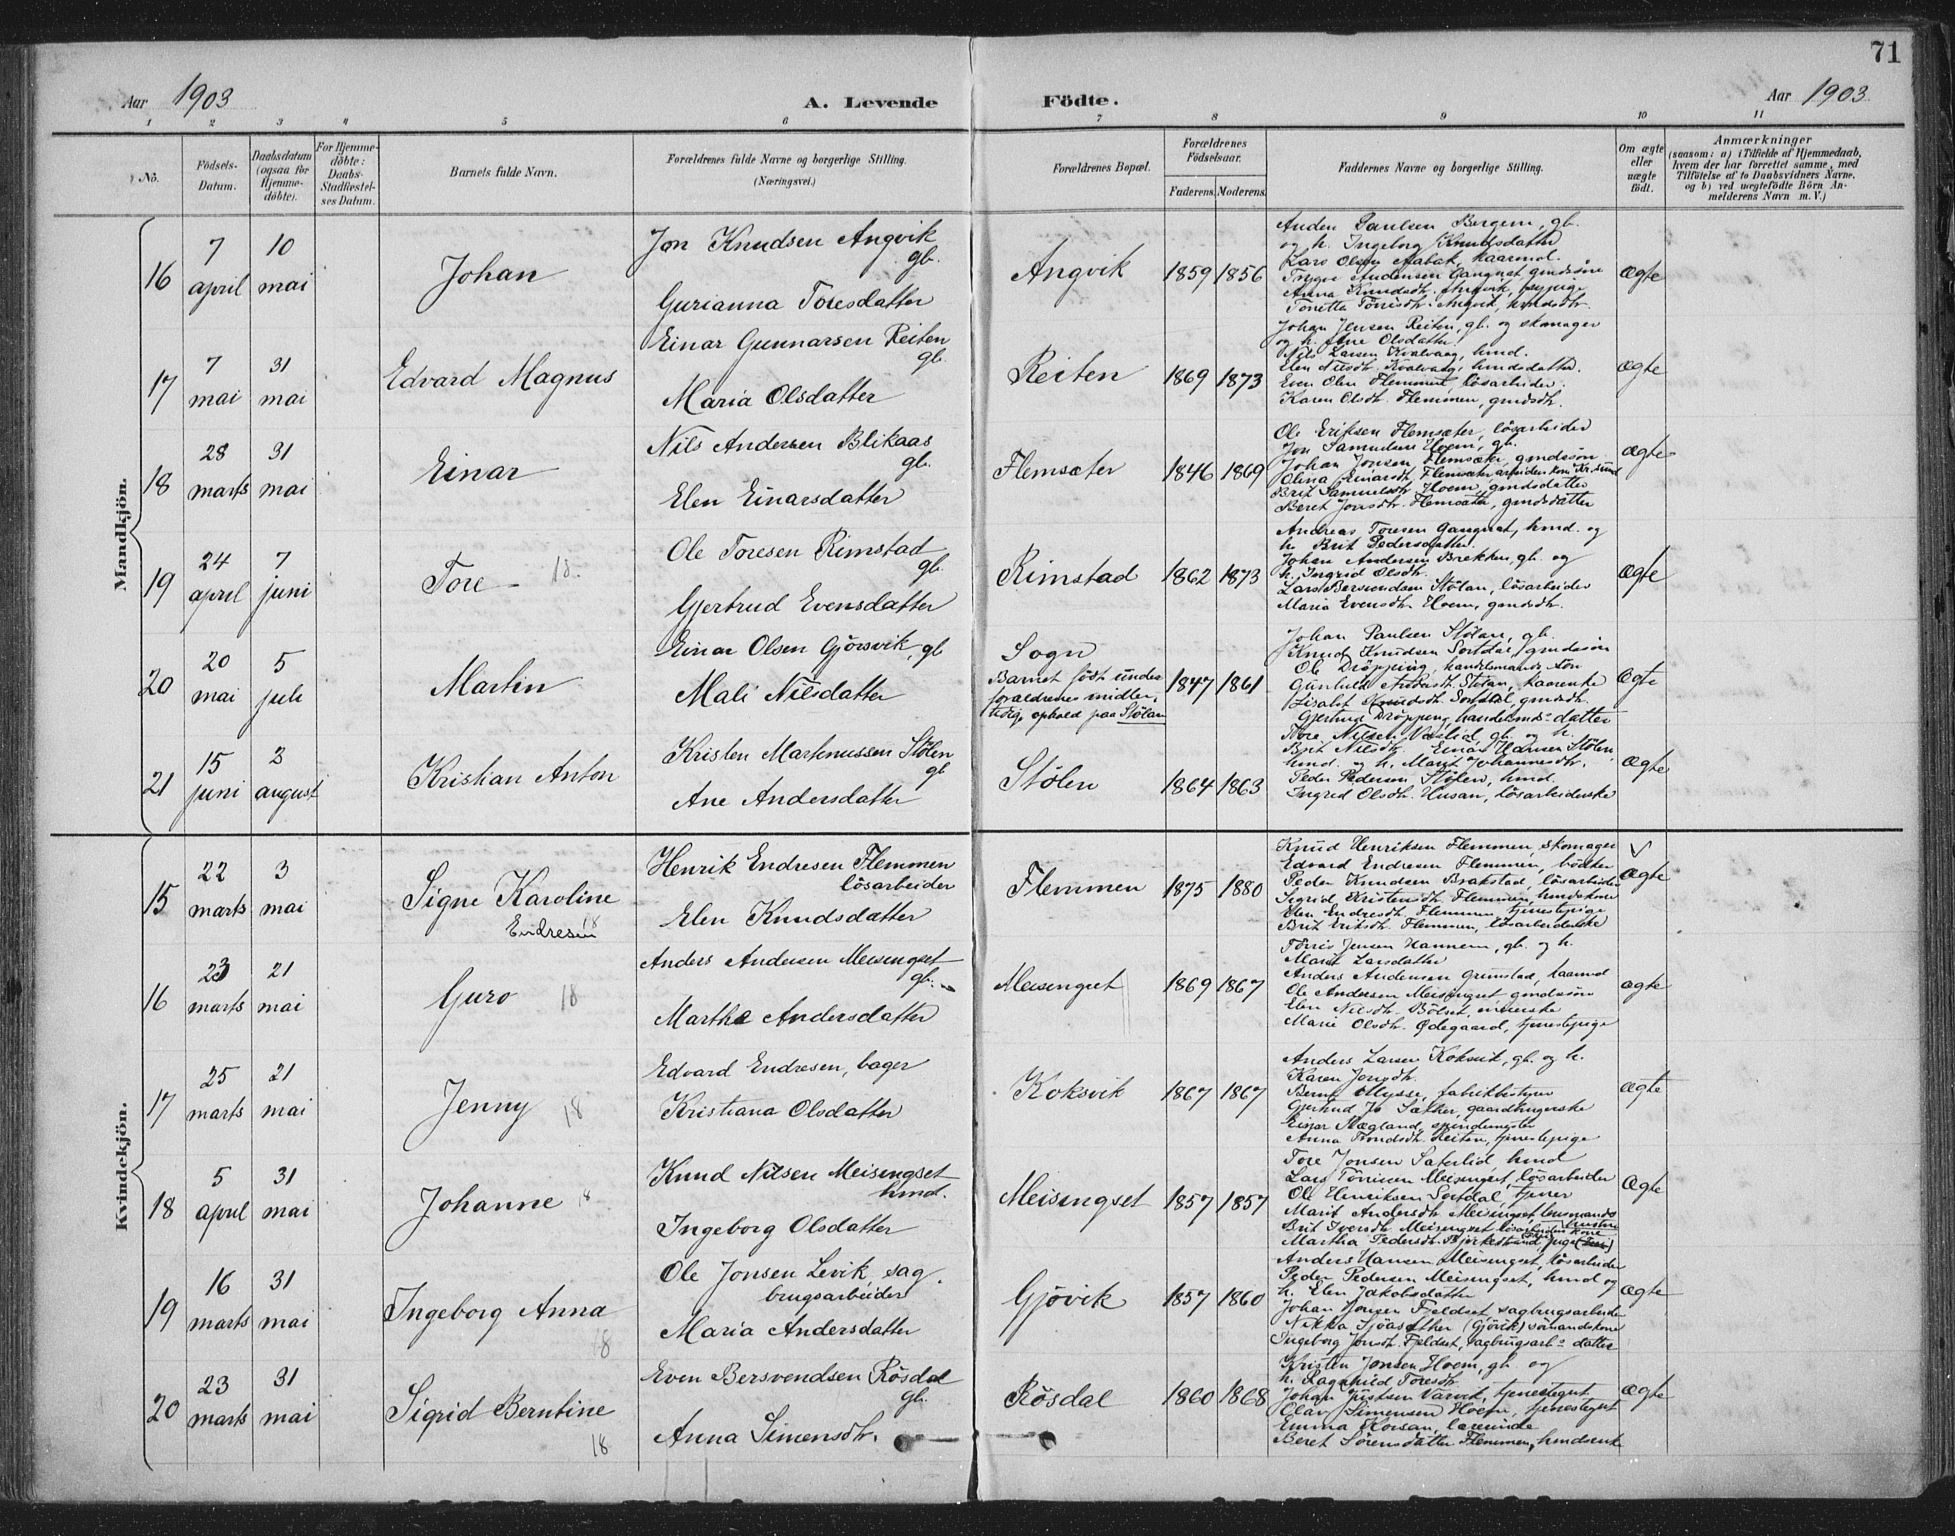 71
Aar 1903
A. Levende Födte.
Aar 1903
1 2 3 4 5 6 7 8 9 10 11
No.
Födsels-Datum.
Daabsdatum (ogsaa for Hjemme-döbte).
For Hjemme-döbte: Daabs-Stadfæstel-ses Datum.
Barnets fulde Navn.
Forældrenes fulde Navne og borgerlige Stilling. (Næringsvei.)
Forældrenes Bopæl.
Forældrenes Födselsaar.
Faderens. Moderens.
Faddernes Navne og borgerlige Stilling.
Om ægte eller uægte födt.
Anmærkninger
(saasom: a) i Tilfælde af Hjemmedaab, hvem der har forrettet samme, med Tilföielse af to Daabsvidners Navne. og b) ved uægtefödte Börn An-melderens Navn m. V.)
Mandkjön.
16 7 april 10 mai Johan
Jon Knudsen Angvik gb.
Gurianna Toresdatter
Angvik 1859 1856
Anders Paulsen Bergem, gb.
og h. Ingeborg Knudsdatter
Lars Olsen
Trygve Andersen Gangnæt gmdssön
Anna Knudsdtr. Angvik,
Tonetta Törrisdtr. Angvik, hmdsdtr.
Ægte
17 7 mai 31 mai Edvard Magnus
Einar Gunnarsen Reiten gb.
Maria Olsdatter
Reiten 1869 1873
Johan Jensen Reiten, gb. og skomager
og h. Ane Olsdatter.
Nils Larsen Kvalvaag, hmd.
Elen Nilsdtr. Kvalvaag, hmdsdatter.
Even Olsen Flemmen, lösarbeider.
Karen Olsdtr. Flemmen, gmdsdtr.
Ægte
18 28 marts 31 mai Einar
Nils Andersen Blikaas gb.
Elen Einarsdatter
Flemsæter 1846 1869
Ole Eriksen Flemsæter, lösarbeider
Jon Samuelsen Hoem, gb.
Johan Jonsen Flemsæter, gmdssön
Olina Einarsdtr. Flemsæter arbeiderkone Kr.sund
Brit Samuelsdtr. Hoem, gmdsdatter
Beret Jonsdtr. Flemsæter, gmdsdatter
Ægte
19 24 april 7 juni Tore 18
Ole Toresen Rimstad gb.
Gjertrud Evensdatter
Rimstad 1862 1873
Andreas Toresen Gangnæt, hmd. og
h. Brit Pedersdatter.
Johan Andersen Brekken, gb. og
h. Ingrid Olsdtr.
Lars Bersvendsen Stölan, lösarbeider
Maria Evensdtr. Hoem, gmdsdtr.
Ægte
20 20 mai 5 juli Martin
Einar Olsen Gjörsvik, gb
Mali Nilsdatter
Sogn
Barnet födt under
forældrenes midler-
tidig ophold paa Stölan
1847 1861
Johan Paulsen Stölan, gb.
Knud Knudsen Sortdal, gmdssön
Ole Dröpping, handelsmands sön
Gunhild Stölan, kaarenke
Lisabet Knudsdtr. Sortdal, gmdsdtr.
Gjertrud Dröpping, handelsmds- datter
Ægte
21 15 juni 2 august Kristian Anton
Kristen Martinussen Stölen gb
Ane Andersdatter
Stölen 1864 1863
Tore Nilsen Vaslid gb. og h.
Brit Nilsdtr. Einar Hansen Stölen,
hmd. og h. Marit Johannesdtr.
Peder Pedersen Stölen, hmd.
Ingrid Olsdtr. Husan, lösarbeiderske
Ægte
Kvindekjön.
15 22 marts 3 mai Signe Karoline
Endresen 18
Henrik Endresen Flemmen
lösarbeider
Elen Knudsdatter
Flemmen 1875 1880
Knud Henriksen Flemmen, skomager
Edvard Endresen Flemmen, bödker
Peder Knudsen Brakstad, lösarbeider
Sigrid Kristensdtr. Flemmen, hmdskone
Elen Endresdtr. Flemmen, tjenestepige
Brit Eriksdtr. Flemmen, lösarbeiderske
Ægte
16 23 marts 21 mai Guro 18
Anders Andersen Meisingset gb.
Marthe Andersdatter
Meisingset 1869 1867
Törris Jensen Hannem, gb. og h.
Marit Larsdatter
Anders Andersen Grimstad, kaarmd
Ole Andersen Meisingset gmdssön
Elen Nilsdtr. Bölset, inderske
Marie Olsdtr. Ødegaard, tjenestepige
ægte
17 25 marts 21 mai Jenny 18
Edvard Endresen, bager
Kristiana Olsdatter
Koksvik 1867 1867
Anders Larsen Koksvik, gb. og h.
Karen Jonsdtr.
Bernt Myssz, fabrikbestyrer
Gjertrud Jo Sæther, gaardbrugerske
Einar Nægland, spindemester
Anna Trondsdtr. Reiten, tjenestepige
Ægte
18 5 april 31 mai Johanne 18
Knud Nilsen Meisingset
hmd.
Ingeborg Olsdatter
Meisingset 1857 1857
Tore Jonsen Sæterlid, hmd
Lars Törrisen Meisingset, lösarbeider
Ole Henriksen Sortdal, tjener
Marit Andersdtr. Meisingset lensmands
hustru
Brit Iversdtr. Meisingset lösarbeider kone
Martha Pedersdtr. Bjerkestrand, pige
Ægte
19 16 marts 31 mai Ingeborg Anna 18
Ole Jonsen Levik, sag.
brugsarbeider
Maria Andersdatter
Gjövik 1857 1860
Anders Hansen Meisingset, lösarbeider
Peder Pedersen Meisingset, hmd og
h. Elen Jakobsdatter
Johan Jonsen Fjeldset, sagbrugsarbeider
Nikka Sjöasæther (Gjövik) sömandskone
Ingeborg Jonsdtr. Fjeldset, sagbrugsarb- datter
Ægte
20 23 marts 31 mai Sigrid Berntine 18
Even Bersvendsen Rösdal gb.
Anna Simensdtr.
Rösdal 1860 1868
Kristen Jonsen Hoem, gb. og
h. Ragnhild Toresdtr.
Johan Justsen Varvik, tjenestegut
Olav Simensen Hoem, tjenestegut
Emma Korsan, lærerinde
Beret Sörensdatter Flemmen, hmdsenke
Ægte